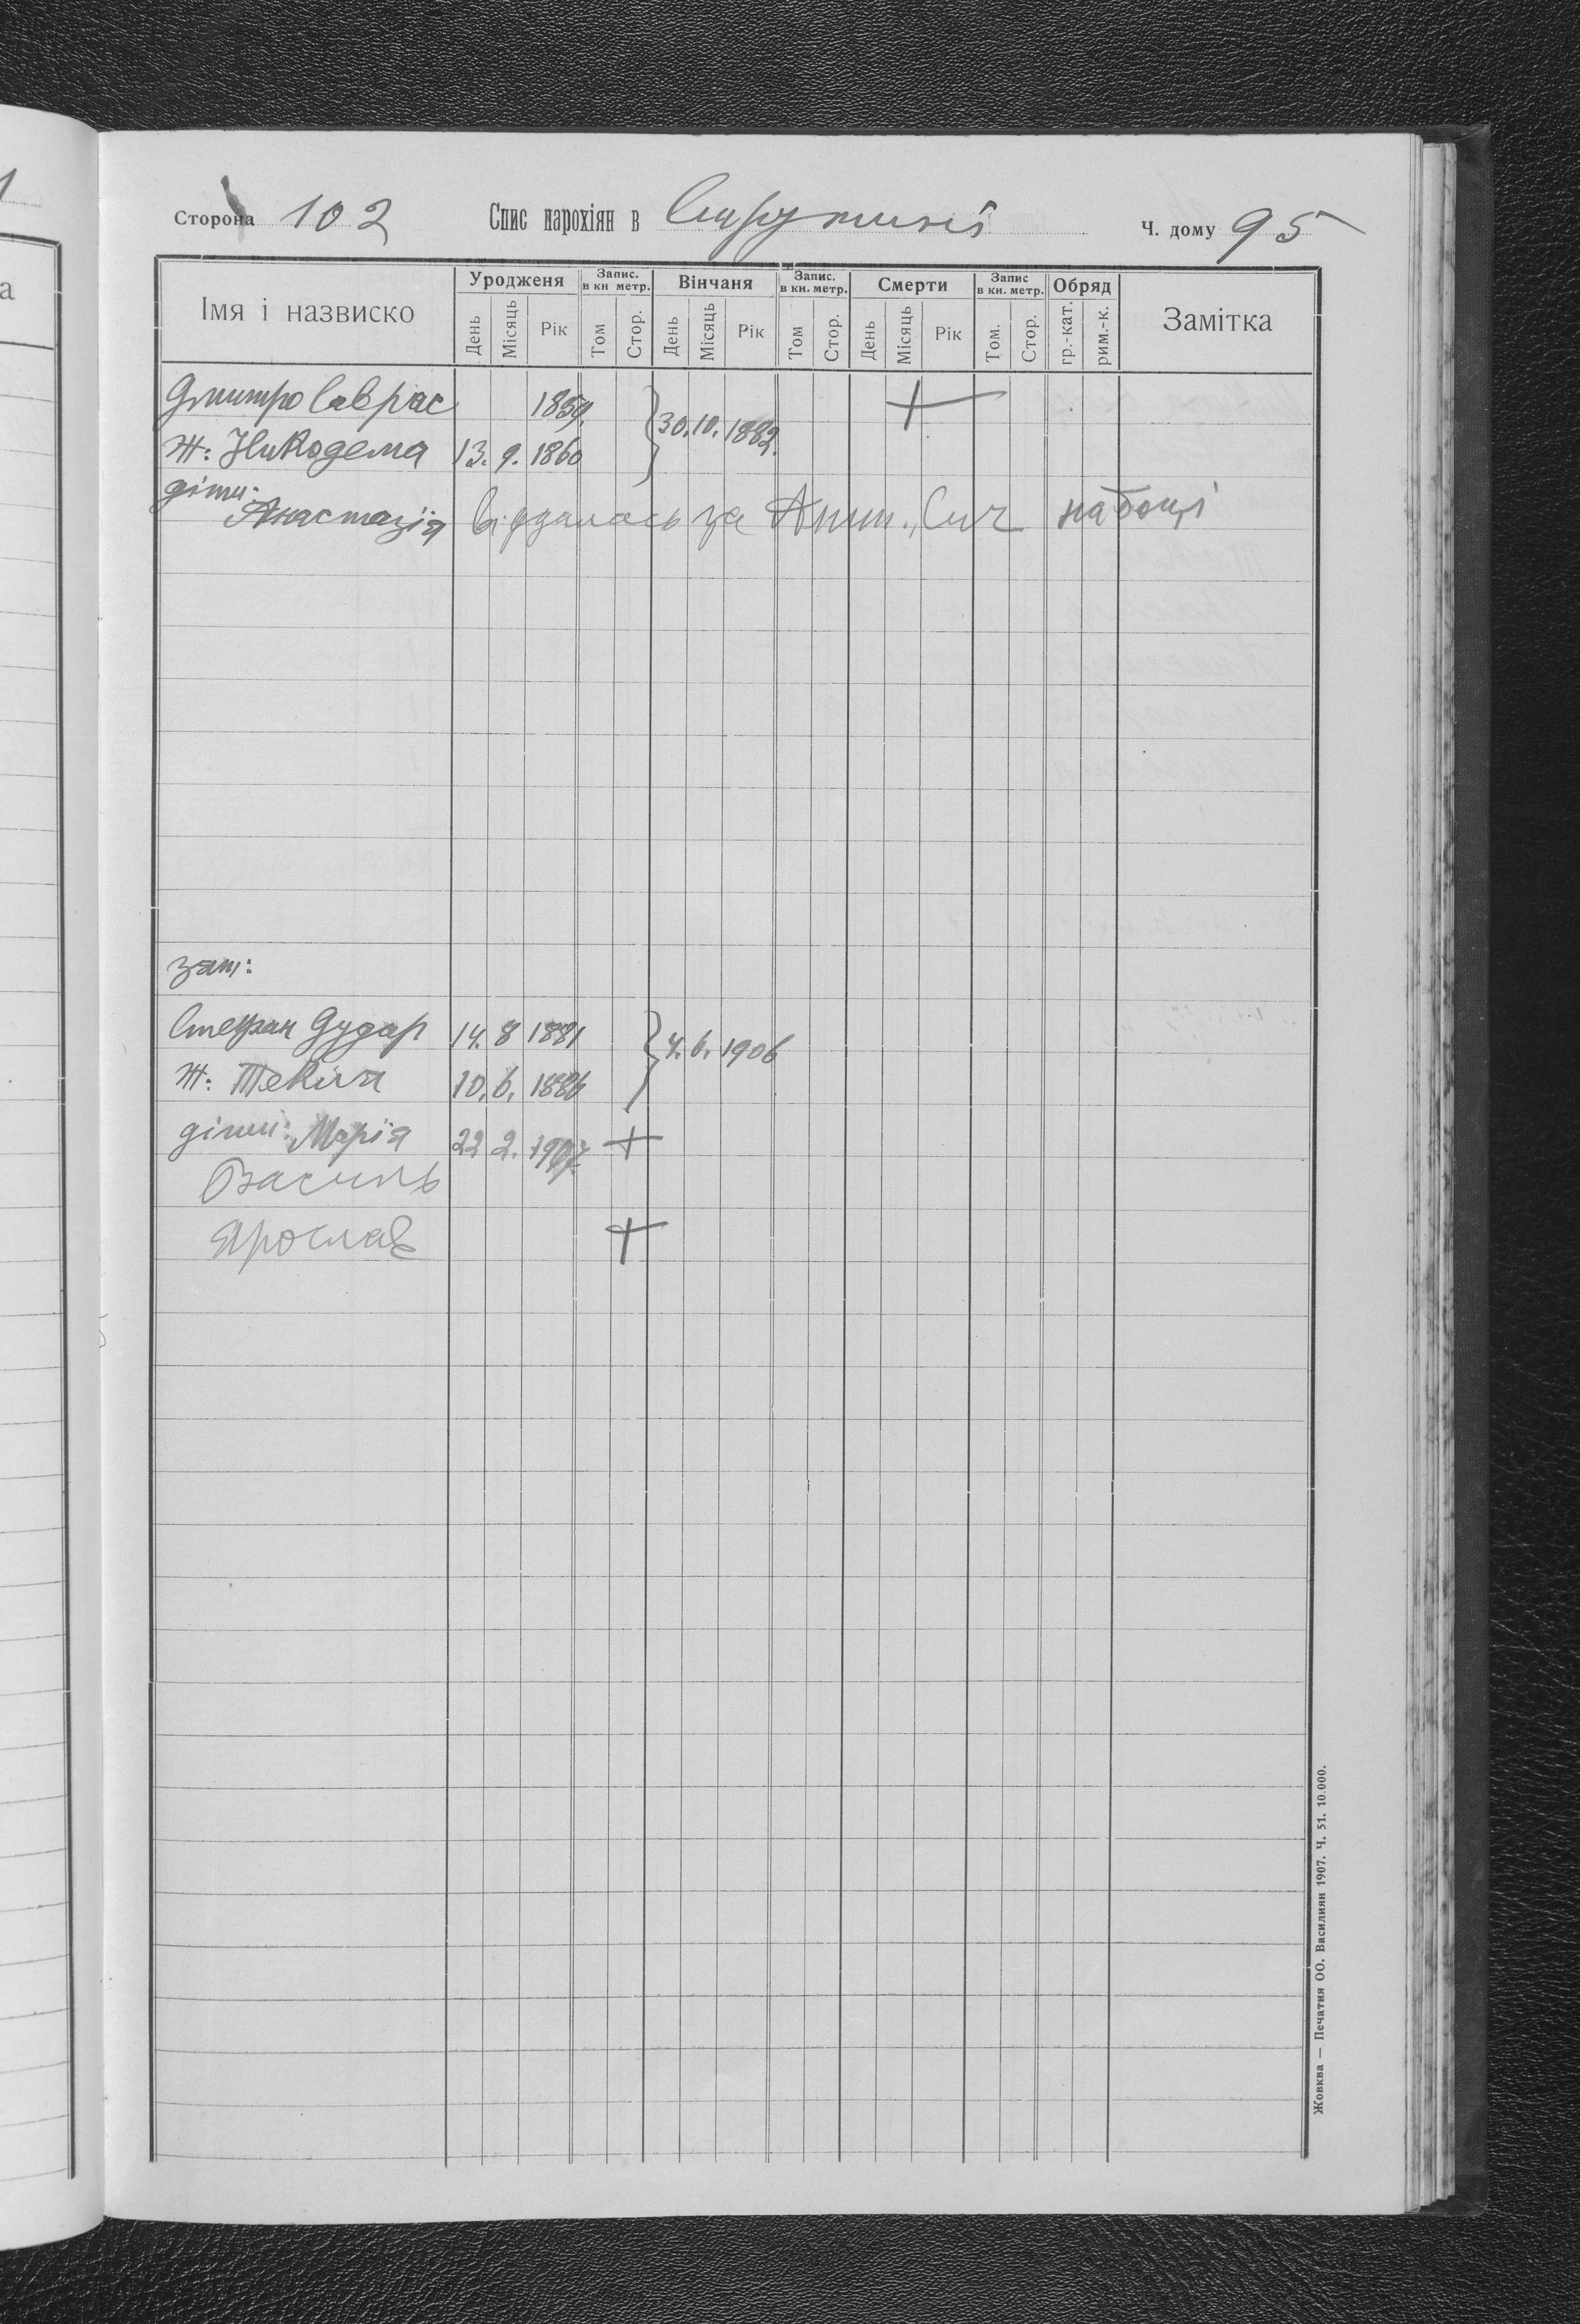 Сторона 102 Спис парохіян в Ч. дому 95
Імя і назвиско Уродженя Запис. в кн метр. Вінчаня Запис. в кн. метр. Смерти Запис в кн. метр. Обряд Замітка
День Місяць Рік Том Стор. День Місяць Рік Том Стор. День Місяць Рік Том. Стор. гр.-кат. рим.-к.
Дмитро Саврас 1859. 30.10.1882. +
Ж: Никодема 13. 9. 1860
діти:
Анастазія віддалась за Ант. Сич на боці
зят:
Стефан Дудар 14. 8 1881 4. 6. 1906
Ж: Текля 10. 6. 1886
діти: Марія 22 2. 1907 +
Василь
Ярослав +
Жовква — Печатня ОО. Василиян 1907. Ч. 51. 10.000.
а